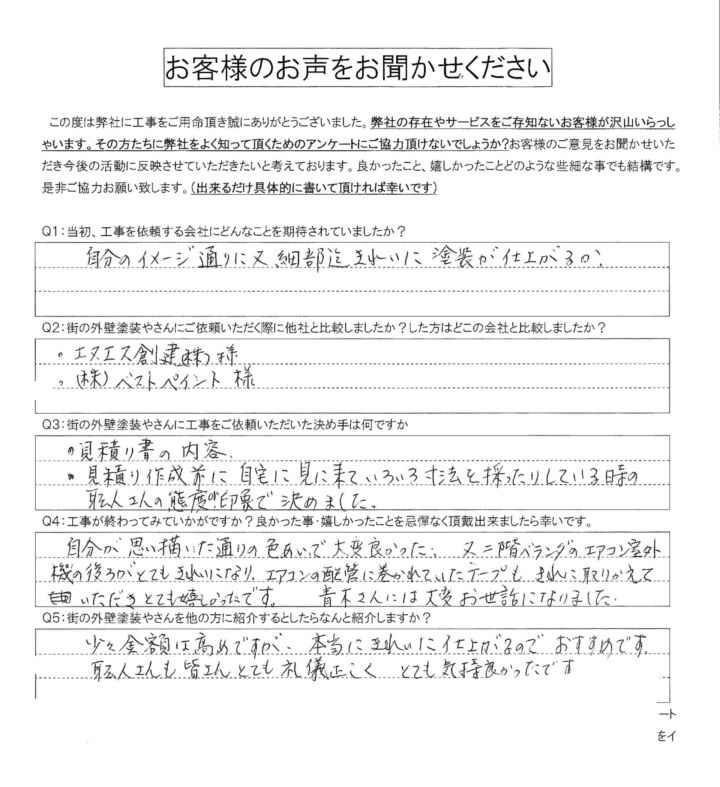 お客様のお声をお聞かせください
この度は弊社に工事をご用命頂き誠にありがとうございました。弊社の存在やサービスをご存知ないお客様が沢山いらっし
ゃいます。その方たちに弊社をよく知って頂くためのアンケートにご協力頂けないでしょうか?お客様のご意見をお聞かせいた
だき今後の活動に反映させていただきたいと考えております。良かったこと、嬉しかったことどのような些細な事でも結構です。
是非ご協力お願い致します。(出来るだけ具体的に書いて頂ければ幸いです)
Q1:当初、工事を依頼する会社にどんなことを期待されていましたか?
自分のイメージ通りに又細部迄きれいに塗装が仕上がるか。
Q2:街の外壁塗装やさんにご依頼いただく際に他社と比較しましたか?した方はどこの会社と比較しましたか?
・エヌエス創建(株)様
・(株)ベストペイント様
Q3:街の外壁塗装やさんに工事をご依頼いただいた決め手は何ですか
・見積り書の内容、
・見積り作成前に自宅に見に来ていろいろ寸法を採ったりしている時の
職人さんの態度や印象で決めました。
Q4:工事が終わってみていかがですか?良かった事・嬉しかったことを忌憚なく頂戴出来ましたら幸いです。
自分が思い描いた通りの色あいで大変良かった。又二階ベランダのエアコン室外
機の後ろがとてもきれいになり、エアコンの配管に巻かれていたテープもきれいに取りかえて
いただきとても嬉しかったです。 青木さんには大変お世話になりました.
Q5:街の外壁塗装やさんを他の方に紹介するとしたらなんと紹介しますか?
少々金額は高めですが、本当にきれいに仕上がるのでおすすめです。
職人さんも皆さんとても礼儀正しく とても気持良かったです
ート
をイ